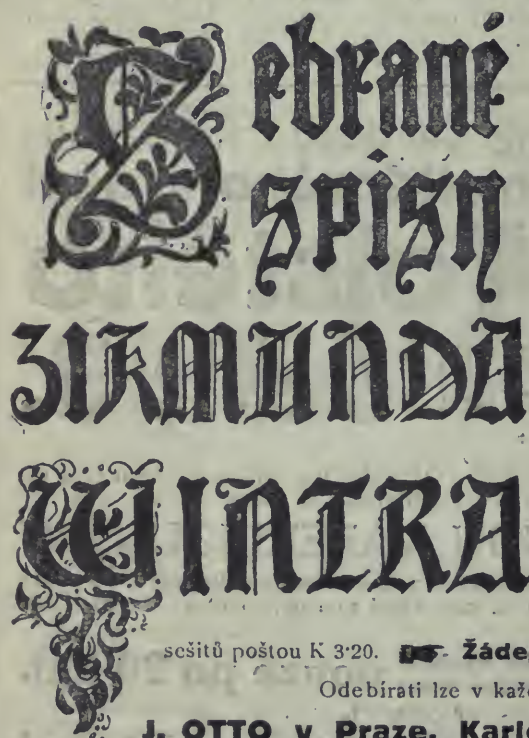 Sebrané
spisy
ZIKMUNDA
WINTRA
sešitů poštou K 3·20. ☛ Žáde
Odebírati lze v kaž
J. OTTO v Praze, Karl